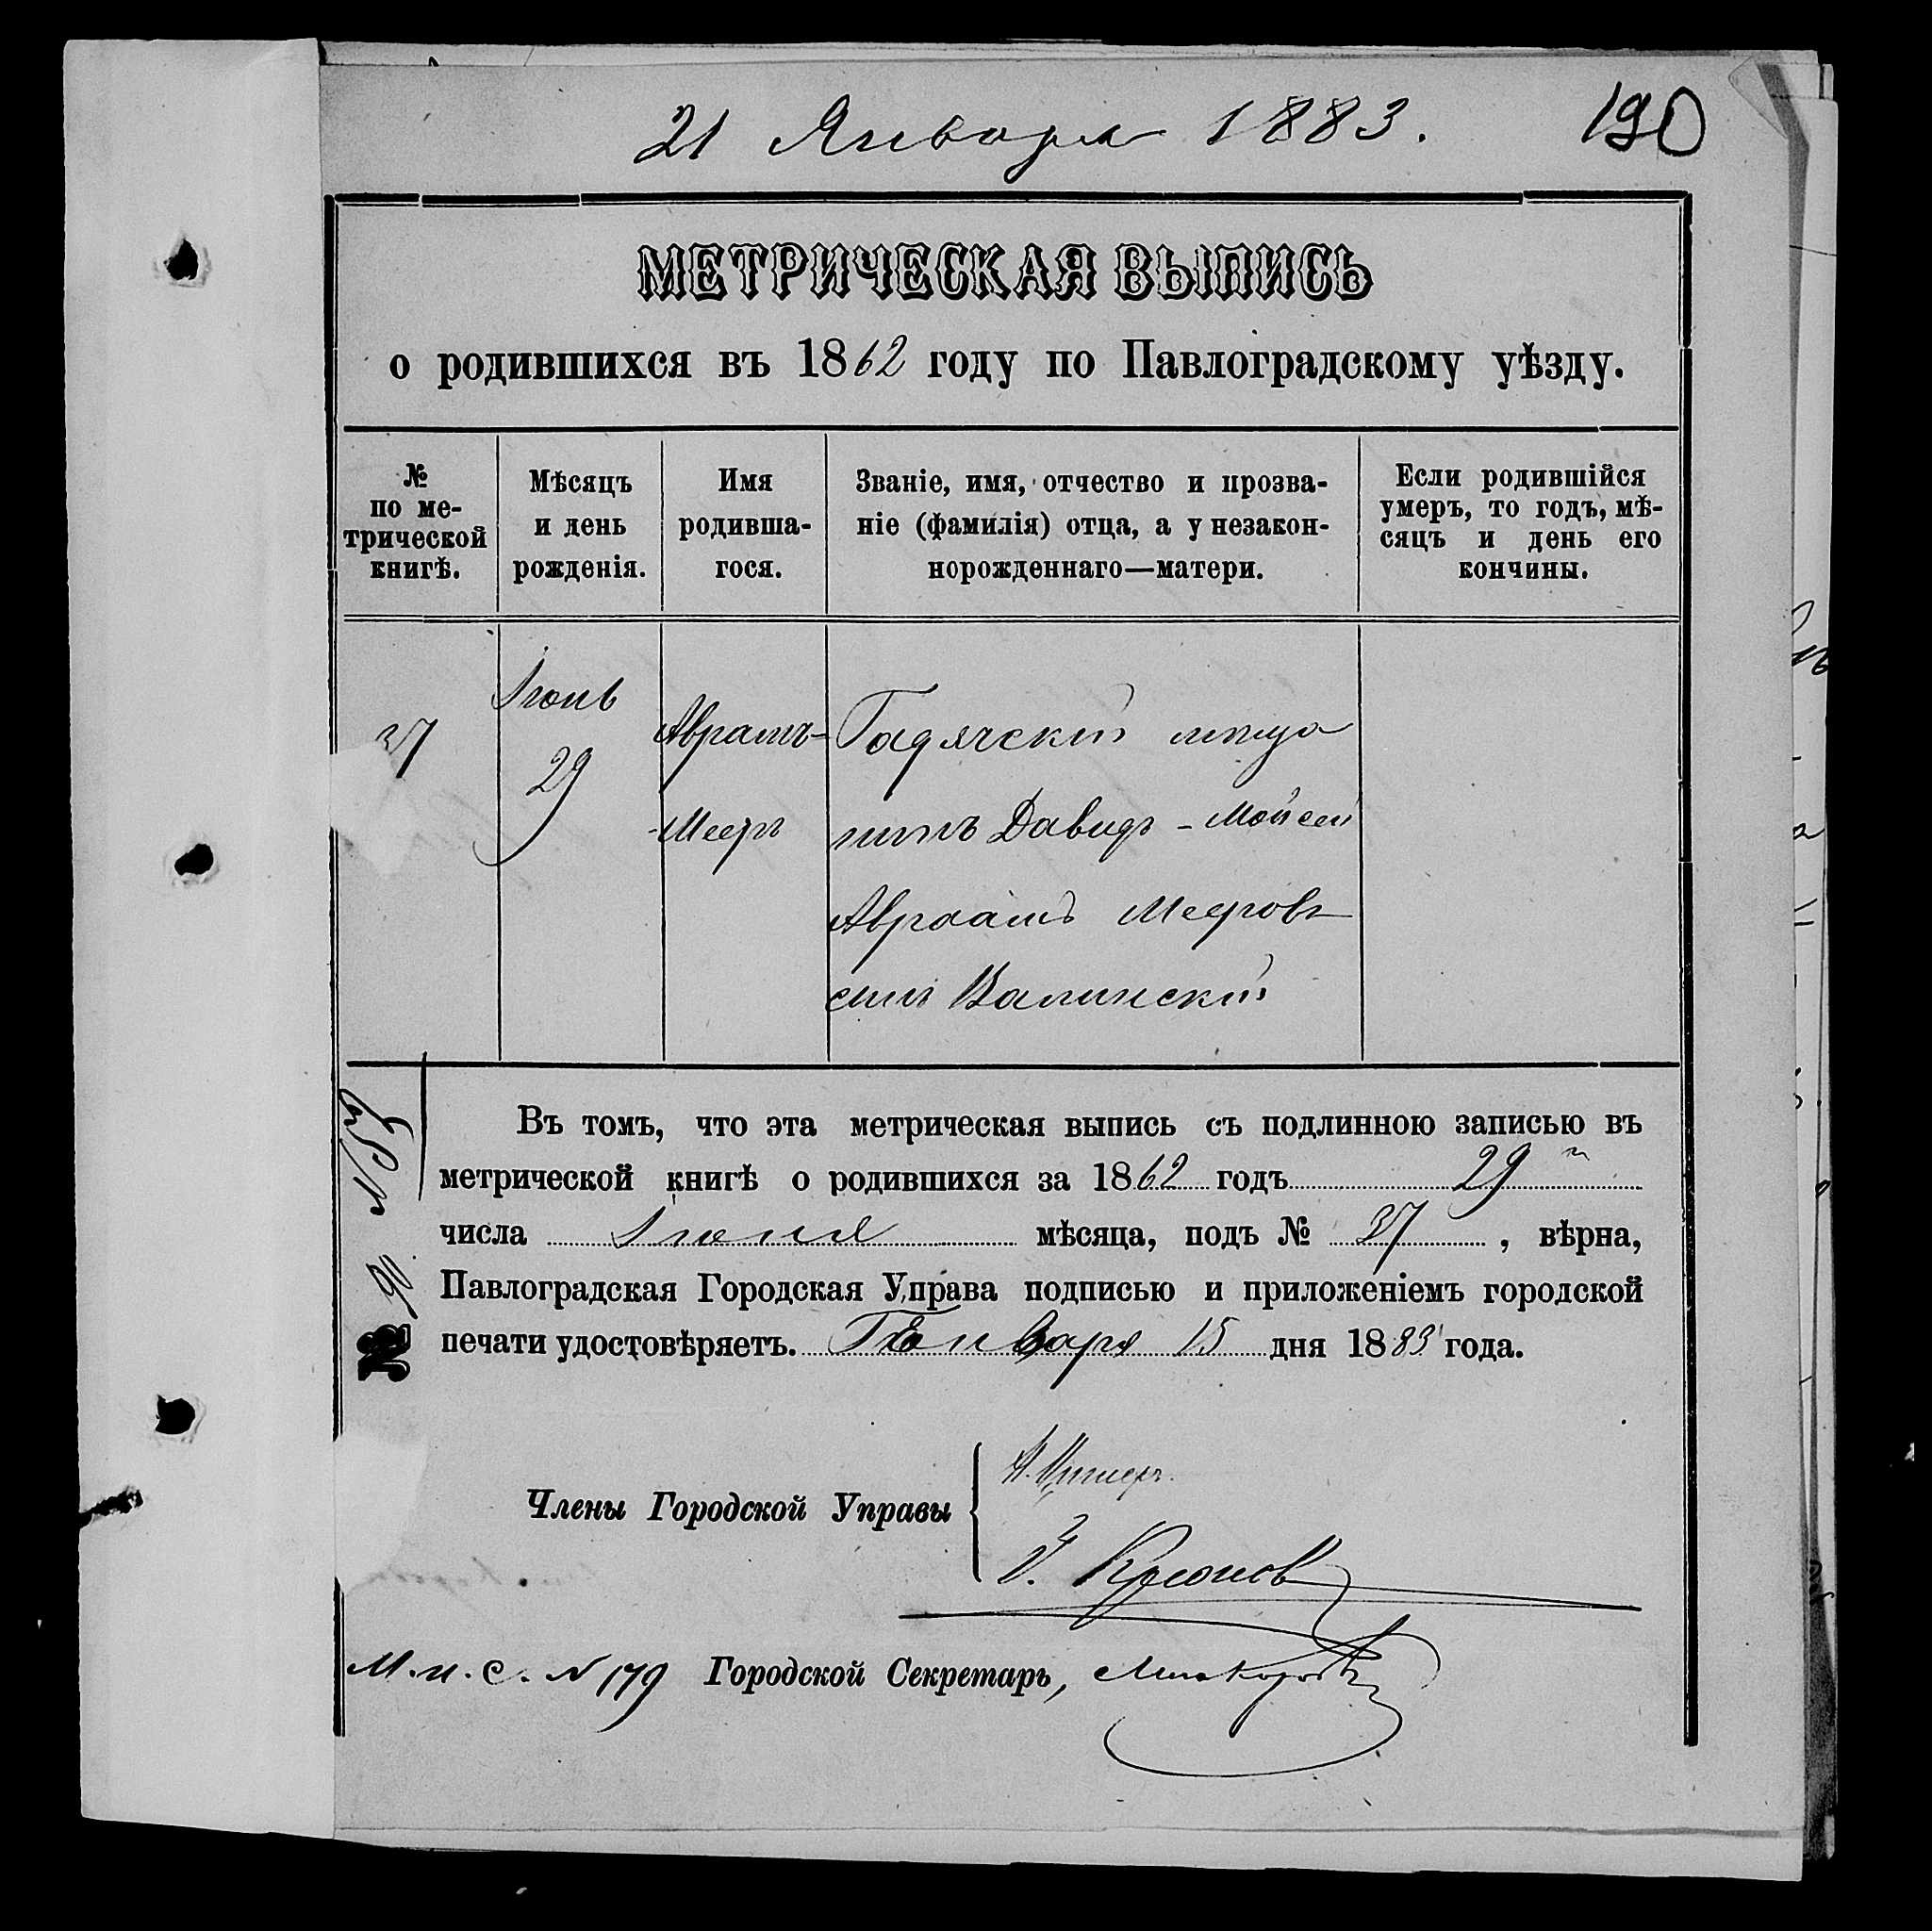 21 Января 1883. 190
МЕТРИЧЕСКАЯ ВЫПИСЬ
о родившихся въ 1862 году по Павлоградскому уѣзду.
№
по ме-
трической
книгѣ.
Мѣсяцъ
и день
рожденія.
Имя
родивша-
гося.
Званіе, имя, отчество и прозва-
ніе (фамилія) отца, а у незакон-
норожденнаго—матери.
Если родившійся
умеръ, то годъ, мѣ-
сяцъ и день его
кончины.
37
Іюнь
29
Аврамъ-
-Мееръ
Гадячскій меща
нинъ Давидъ - Мойсей
Авраамъ Мееровъ
сынъ Валинскій
Въ томъ, что эта метрическая выпись съ подлинною записью въ
метрической книгѣ о родившихся за 1862 годъ 29
числа Іюня мѣсяца, подъ № 37, вѣрна,
Павлоградская Городская Управа подписью и приложеніемъ городской
печати удостовѣряетъ. Генваря 15 дня 1883 года.
№
Члены Городской Управы
М. и. с. N 179 Городской Секретарь,